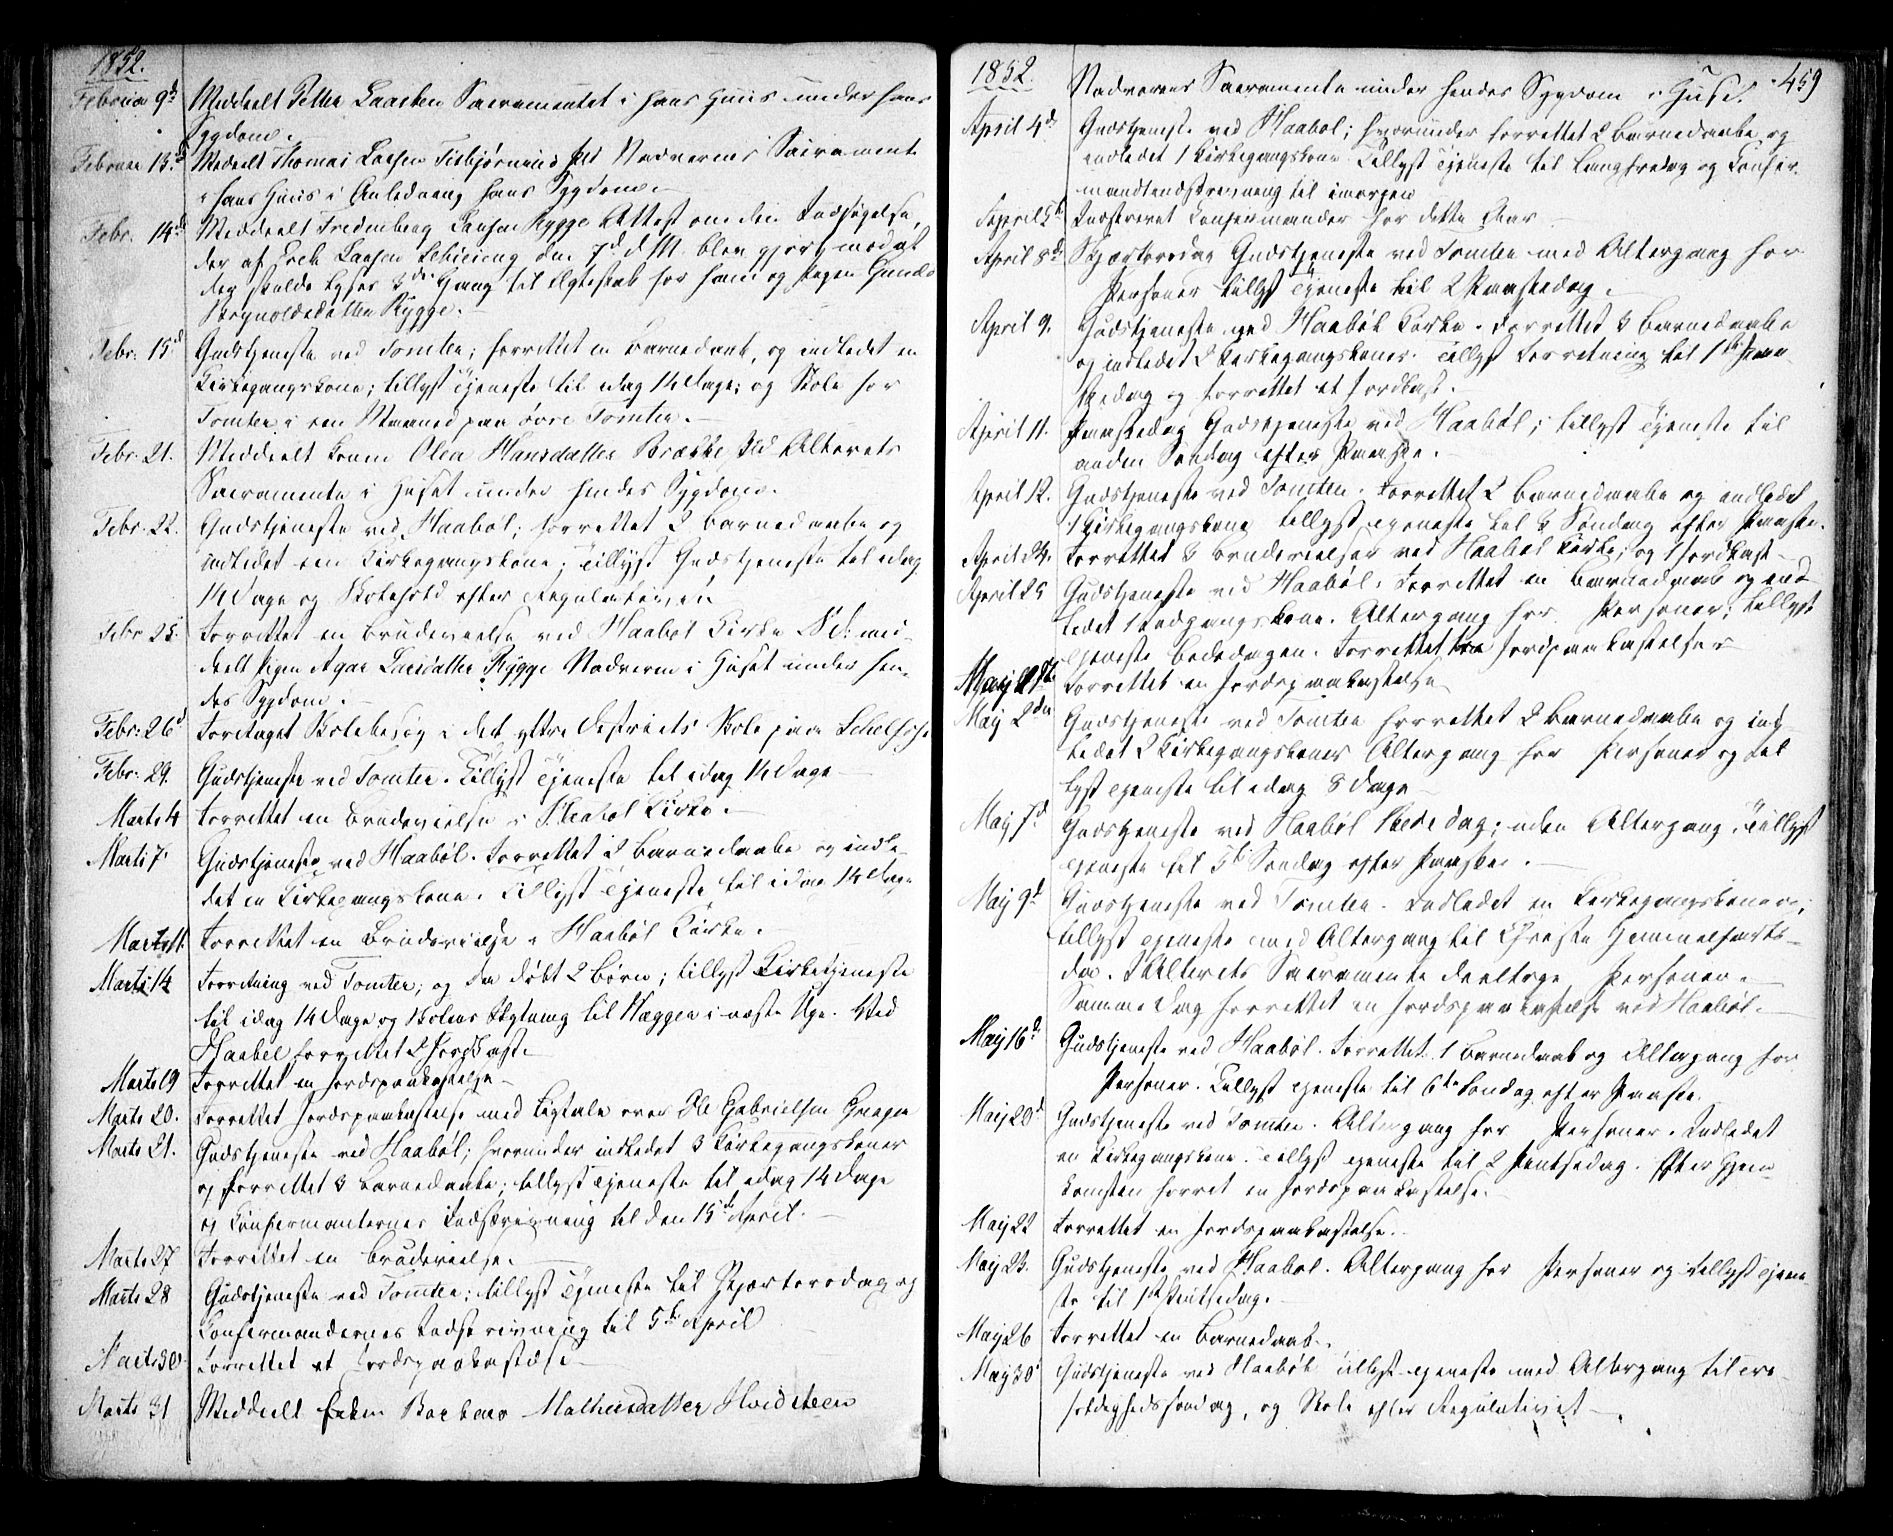 1852.
Februar 9d Meddeelt Petter Laarsen Sacramentet i hans Huus under hans
Sygdom.
Februar 13d Meddeelt Thomas Larsen Nadverens Sacramente
i hans Huus i Anledning hans Sygdom.
Febr. 14d Meddeelt Fredenberg Larsen Rygge Attest om den Indsigelse,
der af Erik Larsen den 7d d. M. blev gjort mod at
der skulde lyses 3die Gang til Ægteskab for ham og Pigen
Rygge.
Febr: 15d Gudstjeneste ved Tomter; forrettet en Barnedaab, og indledet en
Kirkegangskone; tillyst Tjeneste til idag 14 Dage; og Skole for
Tomter i een Maaned paa øvre Tomter.
Febr. 21. Meddeelt Konen Olea Hansdatter Brække Alterets
Sacramente i Huset under hendes Sygdom.
Febr. 22. Gudstjeneste ved Haabøl; forrettet 2 Barnedaabe og
indledet een Kirkegangskone; Tillyst Gudstjeneste til idag
14 Dage og Skolehold efter
Febr 25. Forrettet en Brudevielse ved Haabøl Kirke med-
deelt Pigen Agar Larsdatter Rygge Nadveren i Huset under hen-
des Sygdom.
Febr: 26d Foretaget Skolebesøg i det ytre Districts Skole paa
Febr: 29. Gudstjeneste ved Tomter. Tillyst Tjeneste til idag 14 Dage
Marts 4 Forrettet en Brudevielse i Haabøl Kirke.
Marts 7. Gudstjeneste ved Haabøl. Forrettet 2 Barnedaabe og indle-
det en Kirkegangskone. Tillyst Tjeneste til idag 14 Dage
Marts 11. Forrettet en Brudevielse i Haabøl Kirke.
Marts 14 Forretning ved Tomter, og da døbt 2 Børn; tillyst Kirketjeneste
til idag 14 Dage og Skolens Flytning til Haggen i næste Uge. Ved
Haabøl forrettet 2 Jordkast.
Marts 19 Forrettet en Jordspaakastelse
Marts 20. Forrettet Jordspaakastelse med Ligtale over Ole Gabrielsen
Marts 21. Gudstjeneste ved Haabøl; hvorunder indledet 3 Kirkegangskoner
og forrettet 3 Barnedaabe; tillyst Tjeneste til idag 14 Dage
og Konfirmanternes Indskrivning til den 15de April.
Marts 27 Forrettet en Brudevielse.
Marts 28 Gudstjeneste ved Tomter; tillyst Tjeneste til Skjærtorsdag og
Konfirmandernes Indskrivning til 5te April
Marts 30. Forrettet et Jordspaakastelse
Marts 31 Meddeelt Enken Barbara Mathisdatter Hvidsteen
1852. 459
Nadverens Sacramente under hendes Sygdom i Huset.
April 4de Gudstjeneste ved Haabøl; hvorunder forrettet 2 Barnedaabe og
indledet 1 Kirkegangskone. Tillyst Tjeneste til Langfredag og Konfir-
mandindskrivning til imorgen
April 5te Indskrevet Konfirmander for dette Aar
April 8de Skjærtorsdag Gudstjeneste ved Tomter med Altergang for
Personer tillyst Tjeneste til 2 Paaskedag.
April 9. Gudstjeneste ved Haabøl Kirke. Forrettet 3 Barnedaabe
og indledet 2 Kirkegangskoner. Tillyst Forretning til 1ste Paa-
skedag og forrettet et Jordkast.
April 11. Paaskedag Gudstjeneste ved Haabøl; tillyst Tjeneste til
anden Søndag efter Paaske.
April 12. Gudstjeneste ved Tomter. Forrettet 2 Barnedaabe og indledet
1 Kirkegangskone tillyst Tjeneste til 3 Søndag efter Paaske.
April 24. Forrettet 3 Brudevielser ved Haabøl Kirke, og 1 Jordkast
April 25 Gudstjeneste ved Haabøl. Forrettet en Barnedaab og ind-
ledet 1 Indgangskone. Altergang for Personer; tillyst
Tjeneste Bededagen. Forrettet Jordpaakastelser
Maj 1ste Forrettet en Jordspaakastelse
Maj 2den Gudstjeneste ved Tomter forrettet 2 Barnedaabe og ind-
ledet 2 Kirkegangskoner Altergang for Personer og til
lyst Tjeneste til idag 8 Dage
Maj 7d Gudstjeneste ved Haabøl Bededag; uden Altergang. Tillyst
Tjeneste til 5te Søndag efter Paaske.
Maj 9d Gudstjeneste ved Tomter. Indledet en Kirkegangskone;
tillyst Tjeneste med Altergang til Christi Himmelfarts-
dag. I Alterets Sacramente deeltoge Personer.
Samme Dag forrettet en Jordspaakastelse ved Haabøl.
Maj 16d Gudstjeneste ved Haabøl. Forrettet 1 Barnedaab og Altergang for
Personer. Tillyst Tjeneste til 6te Søndag efter Paaske.
Maj 20d Gudstjeneste ved Tomter. Altergang for Personer. Indledet
en Kirkegangskone. Tillyst Tjeneste til 2 Pintsedag. Efter Hjem-
komsten forret en Jordspaakastelse.
Maj 22 Forrettet en Jordspaakastelse.
Maj 23. Gudstjeneste ved Haabøl. Altergang for Personer og tillyst Tjene-
ste til 1ste Pintsedag.
Maj 26 Forrettet en Barnedaab.
Maj 30 Gudstjeneste ved Haabøl tillyst Tjeneste med Altergang til Tre-
foldighedssøndag, og Skole efter Regulativet